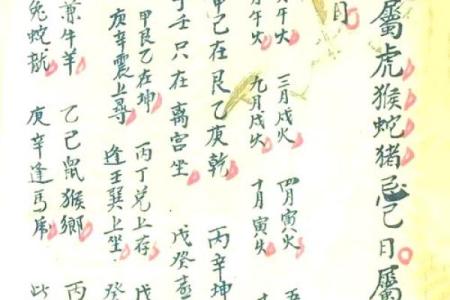 屬虎猴蛇猪忌巳日屬
月
月午火 三月戌火 四月寅火
月午火 九月戌火 十月寅火
甲己在艮乙庚乾 丙辛坤
壬只在离宫坐 戊癸
甲艮乙在坤 丙丁兑上存
庚辛震上尋 逢壬巽上坐 癸
前牛羊 乙己鼠猴鄉 丙
兔蛇 庚辛逢馬虎 此